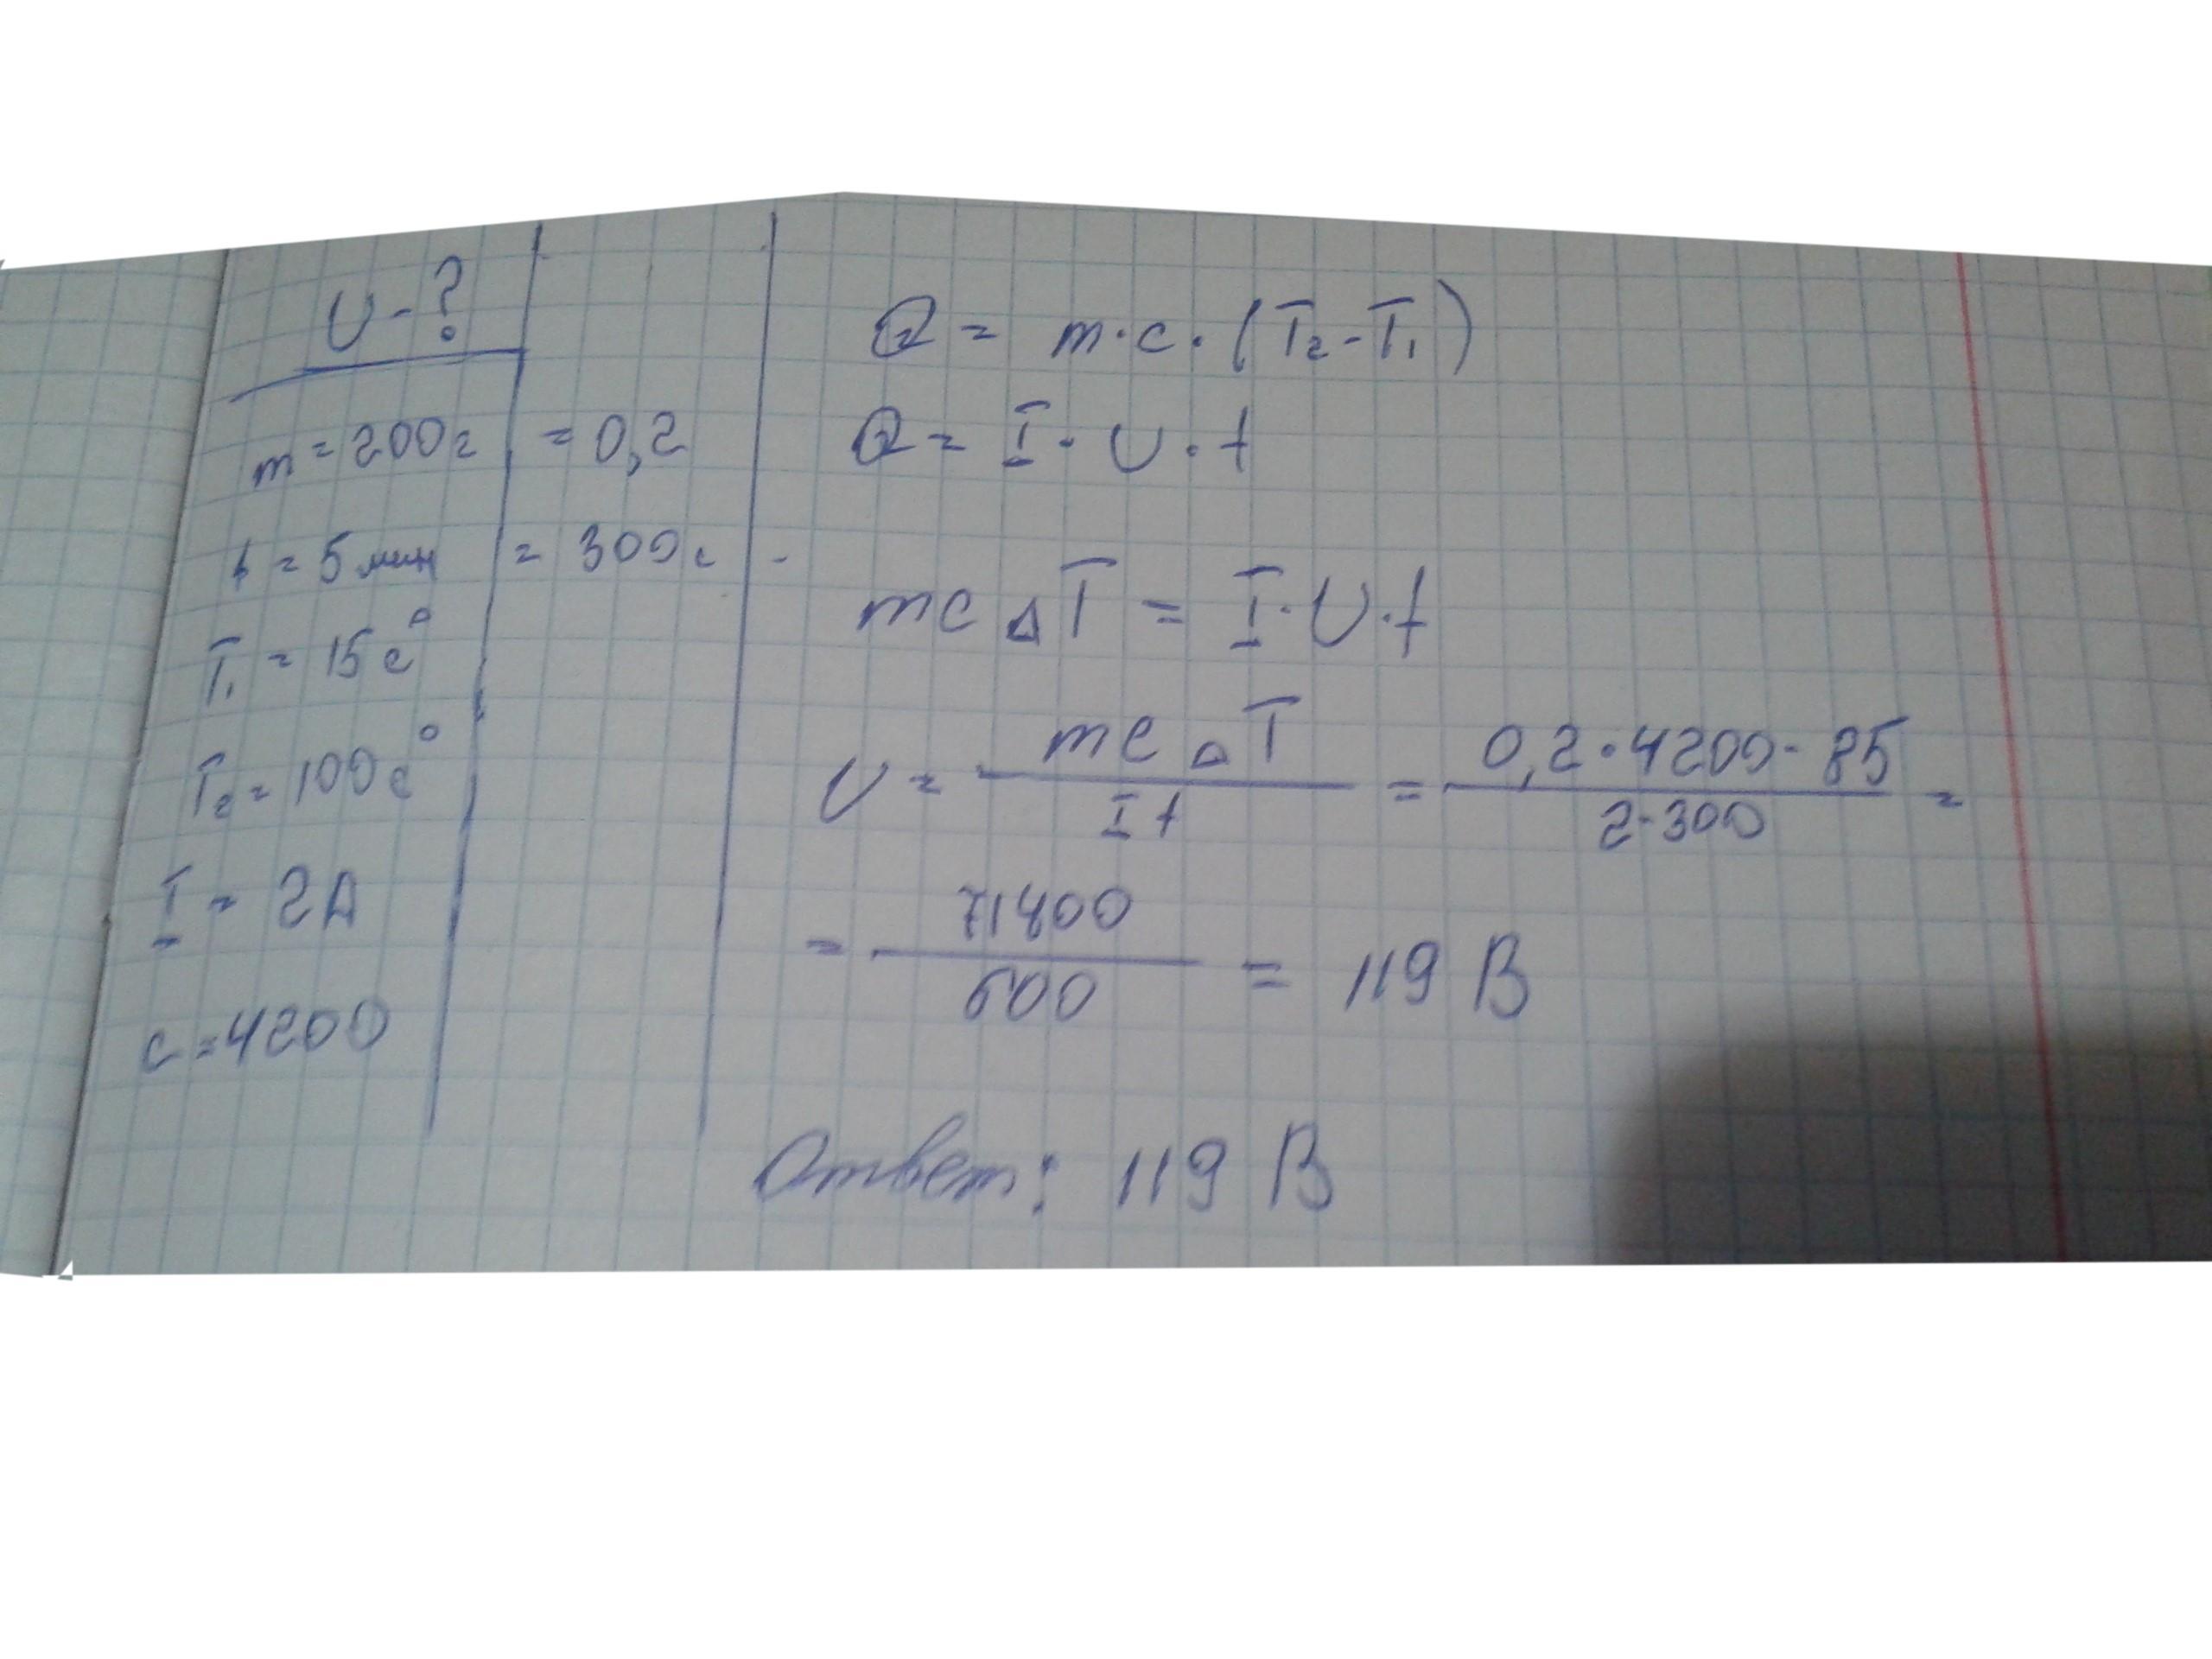 U - ?
m = 200г = 0,2
t = 5 мин = 300с
T₁ = 15 c°
T₂ = 100 c°
I = 2A
c = 4200
Q = m·c·(T₂-T₁)
Q = I·U·t
mc△T = I·U·t
U = mc△T / It = 0,2·4200·85 / 2·300 =
= 71400 / 600 = 119 В
Ответ: 119 В